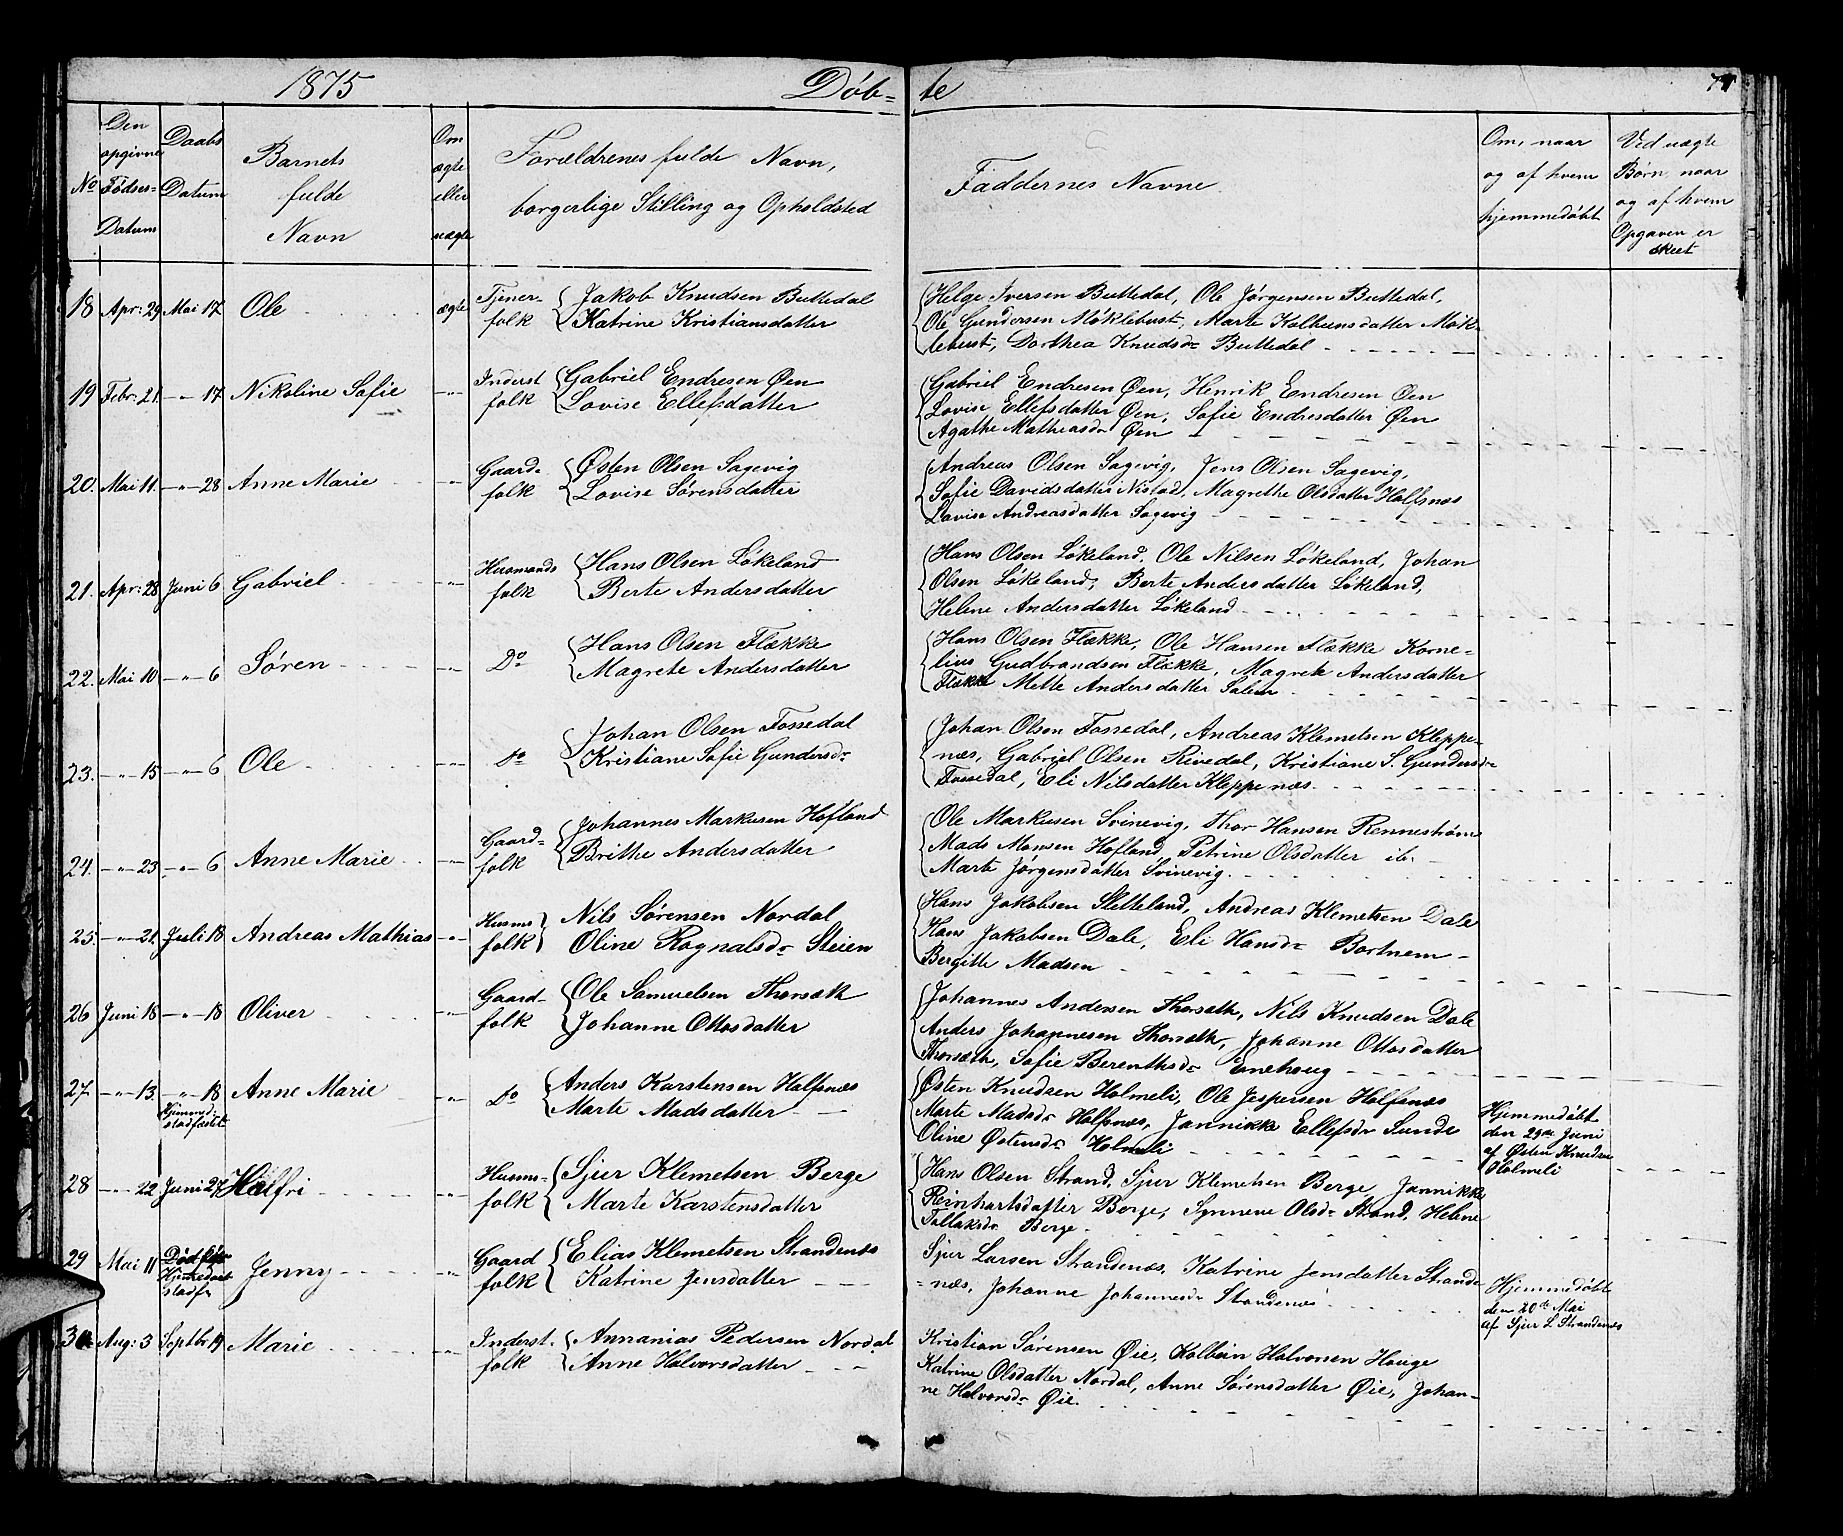 1875 Døb= te 77
No
Den opgivne Fødses= Datum
Daabs Datum
Barnets fulde Navn
Om ægte eller uægte
Forældrenes fulde Navn, borgerlige Stilling og Opholdsted
Faddernes Navne
Om, naar og af hvem hjemmedøbt
Ved uægte Børn naar og af hvem Opgaven er skeet
18 Apr: 29 Mai 17 Ole ægte Tjener= folk
Jakob Knudsen Buttedal
Katrine Kristiansdatter
Helge Iversen Buttedal, Ole Jørgensen Buttedal,
Ole Gundersen Møklebust, Marte Kolbensdatter Møk=
lebust, Dorthea Knudsdr Buttedal
19 Febr: 21. -"- 17 Nikoline Sofie -"- Inderst folk
Gabriel Endresen Øen
Lovise Ellefsdatter
Gabriel Endresen Øen, Henrik Endresen Øen
Lovise Ellefsdatter Øen, Sofie Endresdatter Øen
Agathe Mathiasdr Øen
20. Mai 11. -"- 28 Anne Marie -"- Gaard= folk
Østen Olsen Sagevig
Lovise Sørensdatter
Andreas Olsen Sagevig, Jens Olsen Sagevig,
Sofie Davidsdatter Nistad, Magrethe Olsdatter Halfsnæs
Lovise Andreasdatter Sagevig
21. Apr: 28 Juni 6 Gabriel -"- Husmands folk
Hans Olsen Løkeland
Berte Andersdatter
Hans Olsen Løkeland, Ole Nilsen Løkeland, Johan
Olsen Løkeland, Berte Andersdatter Løkeland,
Helene Andersdatter Løkeland
22. Mai 10 -"- 6 Søren -"- Do
Hans Olsen Flække
Magrete Andersdatter
Hans Olsen Flække, Ole Hansen Flække Korne=
lius Gudbrandsen Flække, Magrete Andersdatter
Flække Mette Andersdatter Salen
23. -"- 15 -"- 6 Ole -"- Do
Johan Olsen Fossedal
Kristiane Sofie Gundersdr
Johan Olsen Fossedal, Andreas Klemetsen Kleppe=
næs, Gabriel Olsen Rivedal, Kristiane S. Gundersdr
Fossedal, Eli Nilsdatter Kleppenæs
24. -"- 23 -"- 6 Anne Marie -"- Gaard= folk
Johannes Markusen Hofland
Brithe Andersdatter
Ole Markusen Svinevig, Thor Hansen Rennestrøm
Mads Monsen Hofland, Petrine Olsdatter ib.
Marte Jørgensdatter Svinevig.
25. -"- 21. Juli 18 Andreas Mathias -"- Husms folk
Nils Sørensen Nordal
Oline Ragnalsdr Steien
Hans Jakobsen Sletteland, Andreas Klemetsen Dale
Hans Jakobsen Dale, Eli Hansdr Bortnem
Bergitte Madsen
26 Juni 18 -"- 18 Oliver -"- Gaard= folk
Ole Samuelsen Thorsæth
Johanne Ottosdatter
Johannes Andersen Thorsæth, Nils Knudsen Dale
Anders Johannesen Thorsæth, Johanne Ottosdatter
Thorsæth, Sofie Berenthsdr Enehoug
27 -"- 13. -"- 18 Hjemmed. stadfæstet Anne Marie -"- Do
Anders Karstensen Halfsnæs
Marte Madsdatter
Østen Knudsen Holmeli, Ole Jespersen Halfsnæs
Marte Madsdr Halfsnæs, Jannikke Ellefsdr Sunde
Oline Østensdr Holmeli
Hjemmedøbt
den 29de Juni
af Østen Knudsen
Holmeli
28 -"- 22 Juni 27 Halfri -"- Husms= folk
Sjur Klemetsen Berge
Marte Karstensdatter
Hans Olsen Strand, Sjur Klemetsen Berge, Jannikke
Reinhartsdatter Berge, Synneve Olsdr Strand, Helene
Tollaksdr Berge
29 Mai 11 Hjemmedøbt stadf. Jenny -"- Gaard folk
Elias Klemetsen Strandenæs
Katrine Jensdatter
Sjur Larsen Strandenæs, Katrine Jensdatter Strande
=næs, Johanne Johannesdr Strandenæs
Hjemmedøbt
den 20de Mai
af Sjur L Strandenæs
30 Aug: 3 Septbr 19 Marie -"- Inderst. folk
Annanias Pedersen Nordal
Anne Halvorsdatter
Kristian Sørensen Øie, Kolbein Halvorsen Houge
Katrine Olsdatter Nordal, Anne Sørensdatter Øie, Johan=
ne Halvorsdr Øie.